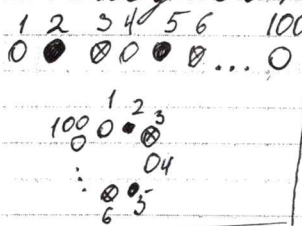 1 2 3 4 5 6 100
1 2 3
100
4
6 5